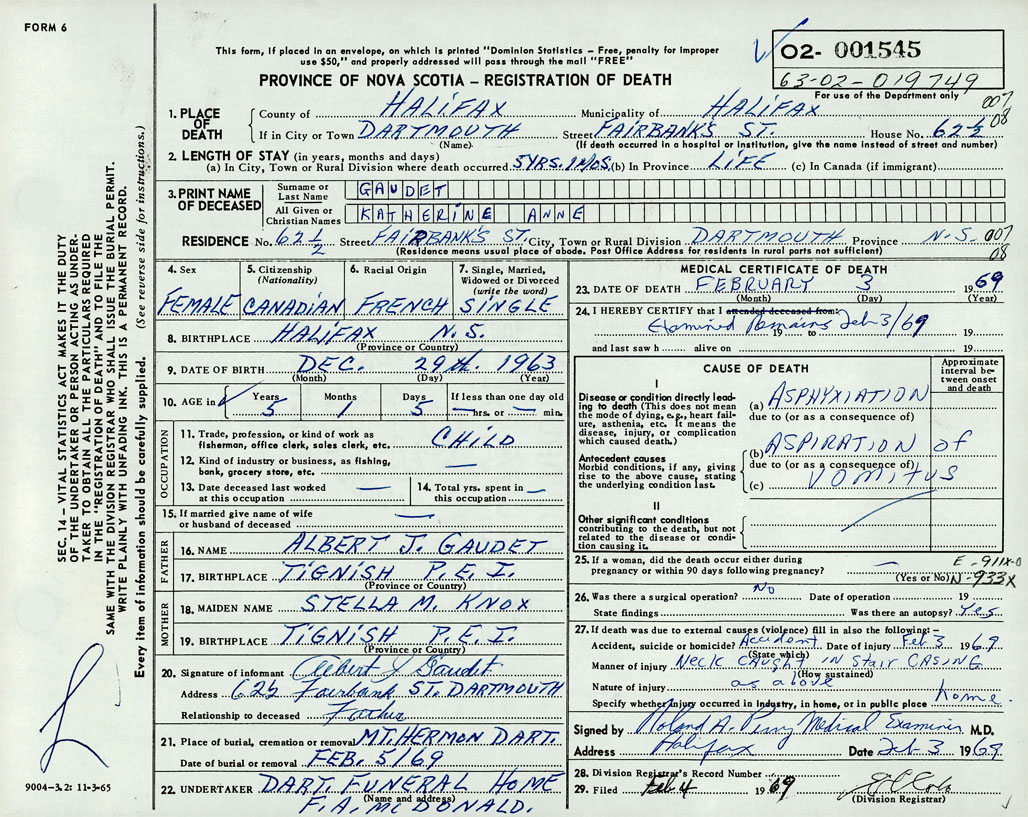 FORM 6
This form, if placed in an envelope, on which is printed "Dominion Statistics – Free, penalty for improper
use $50," and properly addressed will pass through the mail "FREE"
O2- 001545
63-02-019749
For use of the Department only
PROVINCE OF NOVA SCOTIA – REGISTRATION OF DEATH
007
08
1. PLACE OF DEATH
County of HALIFAX Municipality of HALIFAX
If in City or Town DARTMOUTH Street FAIRBANK'S ST. House No. 62½
(Name) (If death occurred in a hospital or institution, give the name instead of street and number)
2. LENGTH OF STAY (in years, months and days)
(a) In City, Town or Rural Division where death occurred 5YRS. 1MOS. (b) In Province LIFE (c) In Canada (if immigrant)
3. PRINT NAME OF DECEASED
Surname or Last Name GAUDET
All Given or Christian Names KATHERINE ANNE
RESIDENCE No. 62½ Street FAIRBANK'S ST. City, Town or Rural Division DARTMOUTH Province N.S. 007
(Residence means usual place of abode. Post Office Address for residents in rural parts not sufficient) 08
4. Sex FEMALE
5. Citizenship (Nationality) CANADIAN
6. Racial Origin FRENCH
7. Single, Married, Widowed or Divorced (write the word) SINGLE
8. BIRTHPLACE HALIFAX N.S.
(Province or Country)
9. DATE OF BIRTH DEC. 29th. 1963
(Month) (Day) (Year)
10. AGE in Years 5 Months 1 Days 5 If less than one day old — hrs. or — min.
OCCUPATION
11. Trade, profession, or kind of work as fisherman, office clerk, sales clerk, etc. CHILD
12. Kind of industry or business, as fishing, bank, grocery store, etc. —
13. Date deceased last worked at this occupation —
14. Total yrs. spent in this occupation —
15. If married give name of wife or husband of deceased —
FATHER
16. NAME ALBERT J. GAUDET
17. BIRTHPLACE TIGNISH P.E.I.
(Province or Country)
MOTHER
18. MAIDEN NAME STELLA M. KNOX
19. BIRTHPLACE TIGNISH P.E.I.
(Province or Country)
20. Signature of informant Albert J Gaudet
Address 62½ Fairbank ST. DARTMOUTH
Relationship to deceased Father
21. Place of burial, cremation or removal MT. HERMON DART.
Date of burial or removal FEB. 5/69
22. UNDERTAKER DART. FUNERAL HOME
(Name and address)
F.A. McDONALD.
MEDICAL CERTIFICATE OF DEATH
23. DATE OF DEATH FEBRUARY 3 1969
(Month) (Day) (Year)
24. I HEREBY CERTIFY that I attended deceased from:
Examined Remains 19 to Feb 3/69 19
and last saw h alive on 19
CAUSE OF DEATH
Approximate interval between onset and death
I
Disease or condition directly leading to death (This does not mean the mode of dying, e.g., heart failure, asthenia, etc. It means the disease, injury, or complication which caused death.)
(a) ASPHYXIATION
due to (or as a consequence of)
Antecedent causes
Morbid conditions, if any, giving rise to the above cause, stating the underlying condition last.
(b) ASPIRATION OF
due to (or as a consequence of)
(c) VOMITUS
II
Other significant conditions contributing to the death, but not related to the disease or condition causing it.
25. If a woman, did the death occur either during pregnancy or within 90 days following pregnancy? —
(Yes or No)
E-911X-0
N-933X
26. Was there a surgical operation? No Date of operation 19
State findings Was there an autopsy? Yes
27. If death was due to external causes (violence) fill in also the following:–
Accident, suicide or homicide? Accident Date of injury Feb 3 1969
(State which)
Manner of injury Neck CAUGHT IN STAIR CASING
(How sustained)
Nature of injury as above
Specify whether injury occurred in industry, in home, or in public place home.
Signed by Roland A. Perry Medical Examiner M.D.
Address Halifax Date Feb 3 1969
28. Division Registrar's Record Number
29. Filed Feb 4 1969
(Division Registrar)
SEC. 14 – VITAL STATISTICS ACT MAKES IT THE DUTY
OF THE UNDERTAKER OR PERSON ACTING AS UNDER-
TAKER TO OBTAIN ALL THE PARTICULARS REQUIRED
IN THE "REGISTRATION OF DEATH" AND TO FILE THE
SAME WITH THE DIVISION REGISTRAR WHO SHALL ISSUE THE BURIAL PERMIT.
WRITE PLAINLY WITH UNFADING INK. THIS IS A PERMANENT RECORD.
Every item of information should be carefully supplied. (See reverse side for instructions.)
9004-3.2: 11-3-65